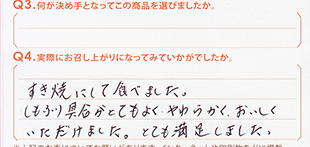 Q3.何が決め手となってこの商品を選びましたか。
Q4.実際にお召し上がりになってみていかがでしたか。
すき焼にして食べました。
しもふり具合がとてもよく、やわらかく、おいしく
いただけました。とても満足しました。